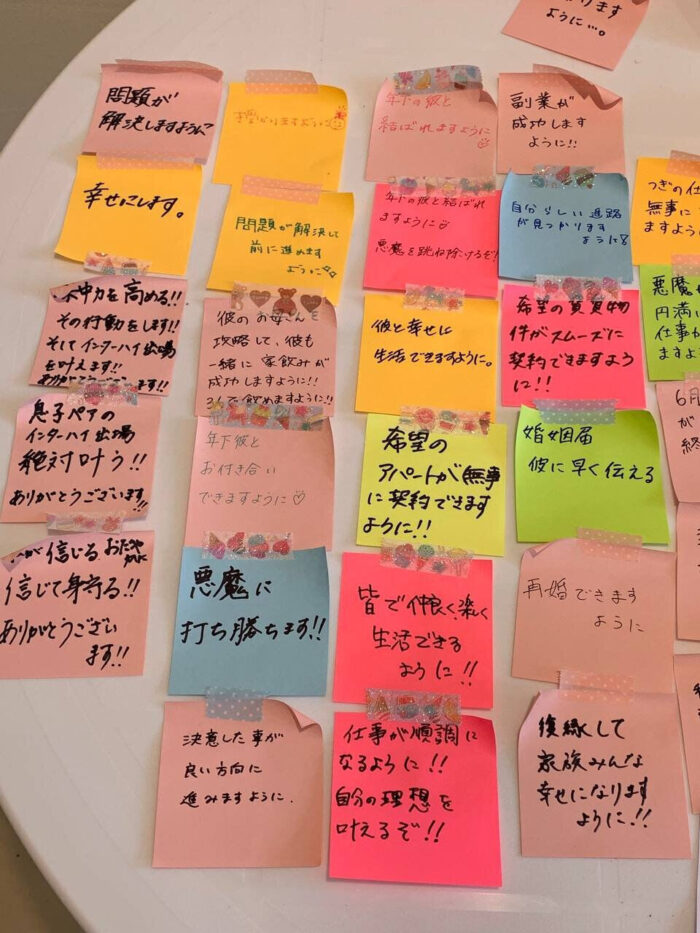 ります
ように…。
問題が
解決しますように
幸せにします。
中力を高める!!
その行動をします!!
そしてインターハイ出場
を叶えます!!
ありがとうございます!!
息子ペアの
インターハイ出場
絶対叶う!!
ありがとうございます!!
信じる
信じて身守る!!
ありがとうござい
ます!!
りますように
問題が解決して
前に進めます
ように
彼のお母さんを
攻略して、彼も
一緒に家飲みが
成功しますように!!
3人で飲めますように!!
年下彼と
お付き合い
できますように♡
悪魔に
打ち勝ちます!!
決意した事が
良い方向に
進みますように.
年下の彼と
結ばれますように
年下の彼と結ばれ
ますように
悪魔を跳ね除けるぞ!
彼と幸せに
生活できますように。
希望の
アパートが無事
に契約できます
ように!!
皆で仲良く楽しく
生活できる
ように!!
仕事が順調に
なるように!!
自分の理想を
叶えるぞ!!
副業が
成功します
ように!!
自分らしい進路
が見つかります
ように
希望の賃貸物
件がスムーズに
契約できますよう
に!!
婚姻届
彼に早く伝える
再婚できます
ように
復縁して
家族みんな
幸せになります
ように!!
つぎの仕
無事に
ますように
悪魔
円満に
仕事が
ますよ
6月
が
終